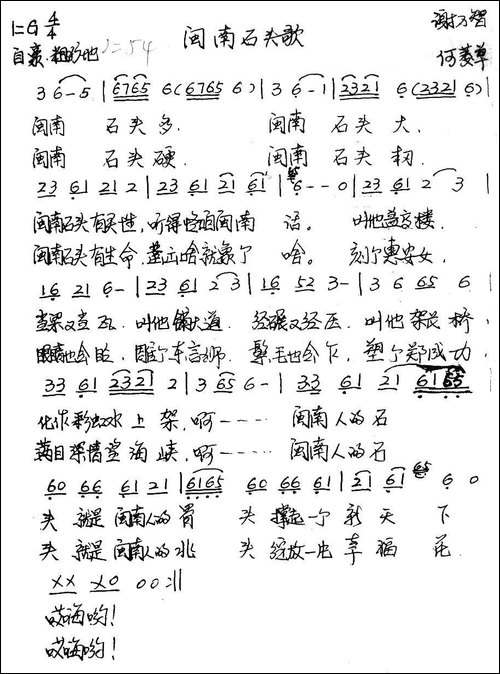 1=G 4/4
自豪.粗犷地 J=54
闽南石头歌
谢万智
何菱草
3 6-5 | 6765 6(6765 6) | 3 6-1 | 2321 6(2321 6) |
闽南 石头多. 闽南 石头大.
闽南 石头硬. 闽南 石头韧.
23 61 21 2 | 23 61 21 61 | 6--0 | 23 61 2 3 |
闽南石头有灵性,听得懂咱闽南 语。 叫他盖高楼.
闽南石头有生命.盖啥就象个 啥。 刻个惠安女,
16 21 6- | 23 61 2 3 | 16 52 3- | 3 6 65 6 |
当梁又当瓦. 叫他铺大道. 经碾又经压. 叫他架长桥.
眼睛也会眨. 雕个东言狮. 鬃毛也会乍. 塑个郑成功.
33 61 2321 2 | 3 65 6- | 33 61 21 6165 |
化作彩虹水上架,啊---- 闽南人的石
满目深情望海峡,啊---- 闽南人的石
60 66 61 21 | 6165 60 66 61 | 21 61 65 6 0
头 就是闽南人的骨 头 撑起一个新天 下
头 就是闽南人的兆 头 绽放一片幸福 花.
xx x0 00 :||
哎嗨哟!
哎嗨哟!